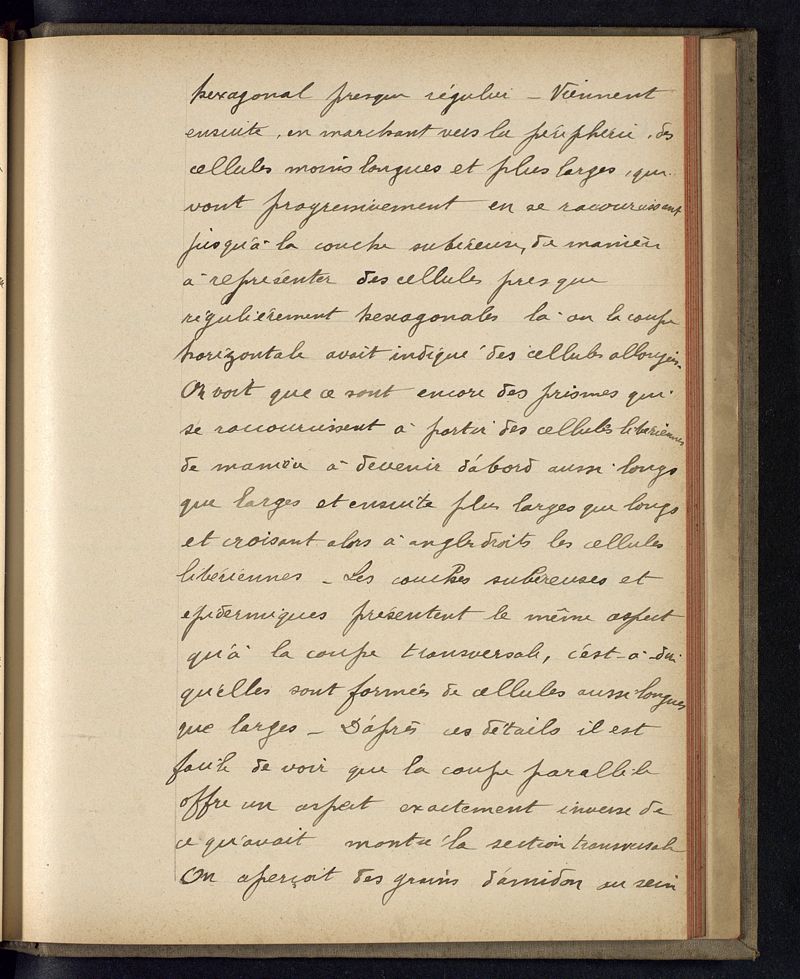 hexagonal presque régulier – Viennent
ensuite, en marchant vers la périphérie, des
cellules moins longues et plus larges, qui
vont progressivement en se racourcissant
jusqu'à la couche subéreuse, de manière
à représenter des cellules presque
régulièrement hexagonales là où la coupe
horizontale avait indiqué des cellules allongées.
On voit que ce sont encore des prismes qui
se raccourcissent à partir des cellules libériennes
de manière à devenir d'abord aussi longs
que larges et ensuite plus larges que longs
et croisant alors à angle droits les cellules
libériennes – Les couches subéreuses et
épidermiques présentent le même aspect
qu'à la coupe transversale, c'est-à-dire
qu'elles sont formées de cellules aussi longues
que larges – D'après ces détails il est
facile de voir que la coupe parallèle
offre un aspect exactement inverse de
ce qu'avait montré la section transversale
On aperçoit des grains d'amidon au sein